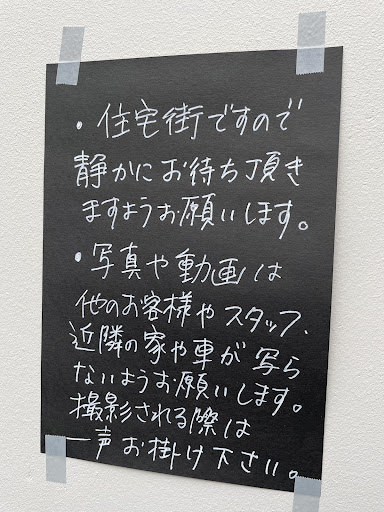 ・住宅街ですので
静かにお待ち頂き
ますようお願いします。
・写真や動画は
他のお客様やスタッフ、
近隣の家や車が写ら
ないようお願いします。
撮影される際は
一声お掛け下さい。